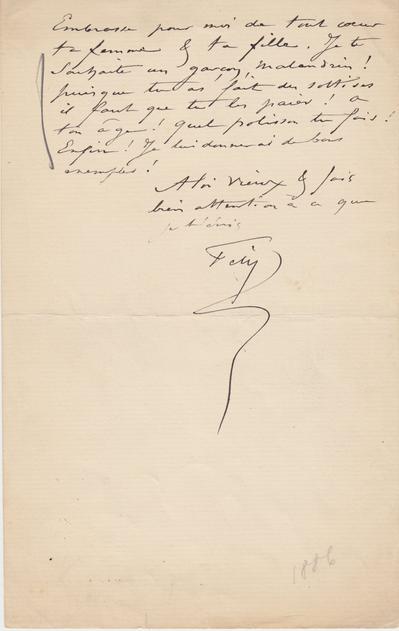 Embrasse pour moi de tout coeur
ta femme & ta fille. Je te
souhaite un garçon, malandrin !
puisque tu as fait des sottises
il faut que tu les paies ! a
ton âge ! quel polisson tu fais !
Enfin ! Je lui donnerai de bons
exemples !
A toi vieux & fais
bien attention à ce que
je t'écris
1886